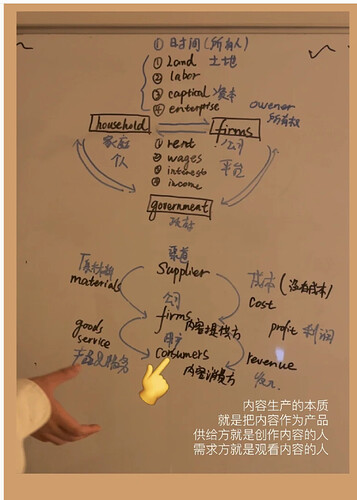 ① 时间 (所有人)
① Land 土地
② labor
③ captical 资本
④ enterprise
owener
所有权
household
firms
家庭
公司
个人
平台
① rent
② wages
③ interest
④ income
government
政府
Supplier
原材料
materials
成本 (没有成本)
cost
公司
firms 内容提供方
profit 利润
goods
service
产品及服务
用户
consumers
内容消费方
revenue
内容生产的本质
就是把内容作为产品
供给方就是创作内容的人
需求方就是观看内容的人